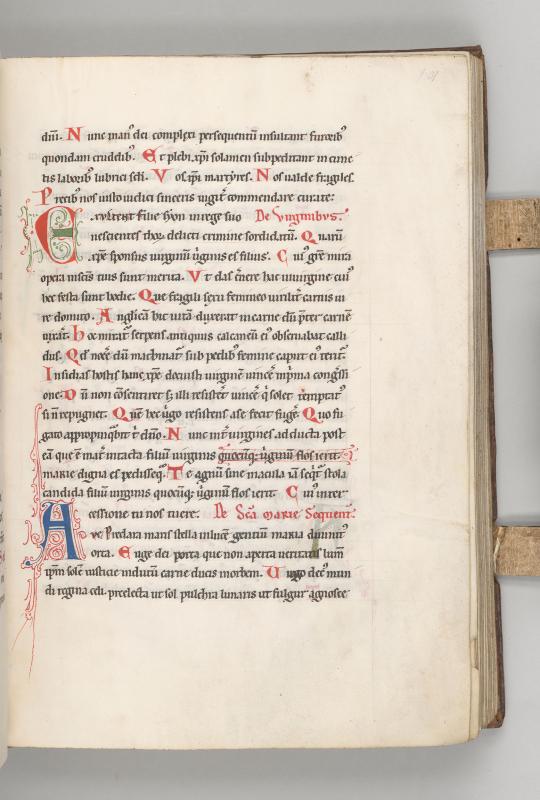 dm̄. Nunc man⁹ dei complexi persequentū insultant furorib⁹
quondam crudelib⁹. Et plebi xp̄i solamen subpeditant in cunc
tis laborib⁹ lubrici scl̄i. Vos xp̄i martyres. Nos ualde fragiles
Precib⁹ nos uisto iudici sinceris iugit̄ commendare curate:
Exultent filie syon in rege suo De Virginibus.
nescientes thori delicti crimine sordidatū. Quarū
xp̄e sponsus uirginum uirginis es filius. Cui⁹ grē mira
opera tuis sunt merita. Vt das uincere hac uirgine cui⁹
hec festa sunt hodie. Que fragili sexu femineo uirilit̄ carnis iu
re domito. Anglicā hic uitā duxerit in carne dū p̄ter carnē
uixit. hoc mirat̄ serpens antiquus calcaneū ei⁹ obseruabat calli
dus. Qd̄ necē dū machinat̄ sub pedib⁹ femine caput ei⁹ terit.
Insidias hostis hanc xp̄e docuisti uirginē uincē in p̄ma congssi
one. Dū non cōsentiret s; illi resistēt uincē q̄ solet temptat⁹
si ū repugnet. Quē hec uirgo resistens a se fecit fugē. Quo fu
gato appropinquabit t̄ dn̄o. Nunc mr̄ uirgines adducta post
eā que ē mat̄ intacta filiū uirginis quocūq; uirginū flos ierit.
marie digna es pedisseq̄. Te agnū sine macula iā seq̄t̄ stola
candida filiū uirginis quocūq; uirginū flos ierit Cui⁹ inter
cessione tu nos tuere. De Sc̄a marie Sequent̄
Aue Preclara maris stella in lucē gentiū maria diuinit⁹
orta. Euge dei porta que non aperta ueritatis lum̄
ip̄m solē iusticie indutū carne ducis in orbem. Uirgo dec⁹ mun
di regina celi. preelecta ut sol pulchra lunaris ut fulgur agnosce